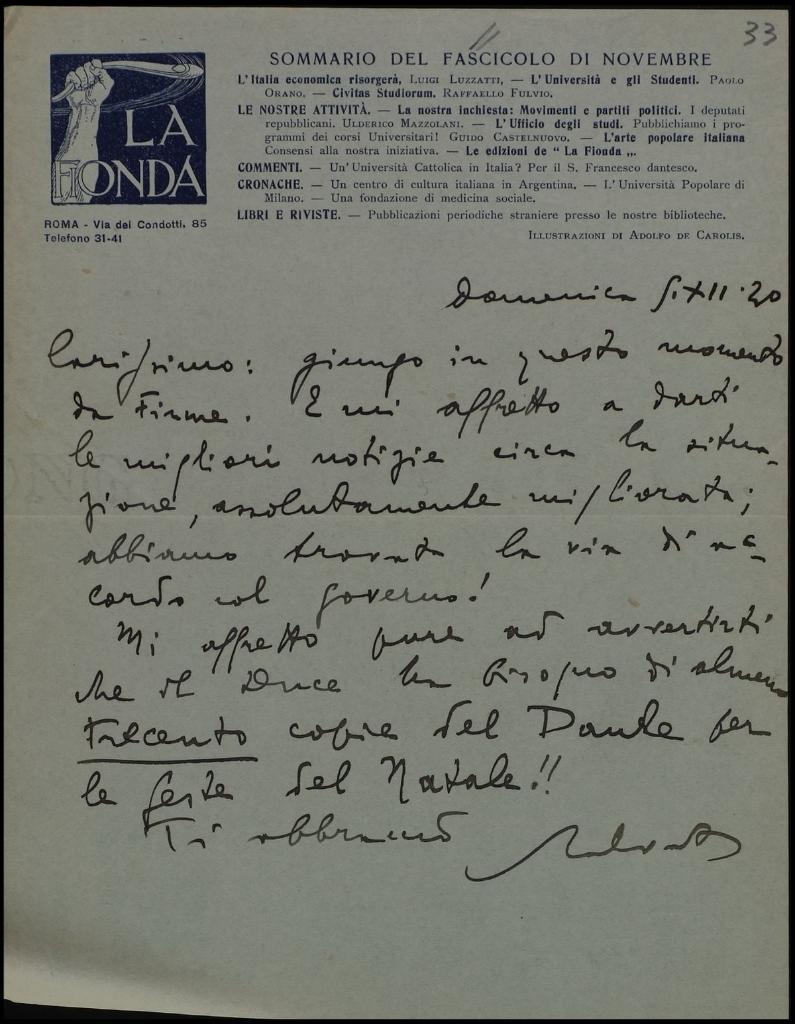 33
LA
FIONDA
ROMA - Via dei Condotti, 85
Telefono 31-41
SOMMARIO DEL FASCICOLO DI NOVEMBRE
L'Italia economica risorgerà, LUIGI LUZZATTI, — L'Università e gli Studenti. PAOLO
ORANO. — Civitas Studiorum. RAFFAELLO FULVIO.
LE NOSTRE ATTIVITÀ. — La nostra inchiesta: Movimenti e partiti politici. I deputati
repubblicani. ULDERICO MAZZOLANI. — L'Ufficio degli studi. Pubblichiamo i pro-
grammi dei corsi Universitari! GUIDO CASTELNUOVO. — L'arte popolare italiana
Consensi alla nostra iniziativa. — Le edizioni de " La Fionda „.
COMMENTI. — Un'Università Cattolica in Italia? Per il S. Francesco dantesco.
CRONACHE. — Un centro di cultura italiana in Argentina. — L'Università Popolare di
Milano. — Una fondazione di medicina sociale.
LIBRI E RIVISTE. — Pubblicazioni periodiche straniere presso le nostre biblioteche.
ILLUSTRAZIONI DI ADOLFO DE CAROLIS.
Domenica 5.XII.20
Carissimo: giungo in questo momento
da Fiume. E mi affretto a darti
le migliori notizie circa la situa-
zione, assolutamente migliorata;
abbiamo trovata la via di ac-
cordo col governo!
Mi affretto pure ad avvertirti
che il Duce ha bisogno di almeno
Trecento copie del Dante per
le feste del Natale!!
Ti abbraccio